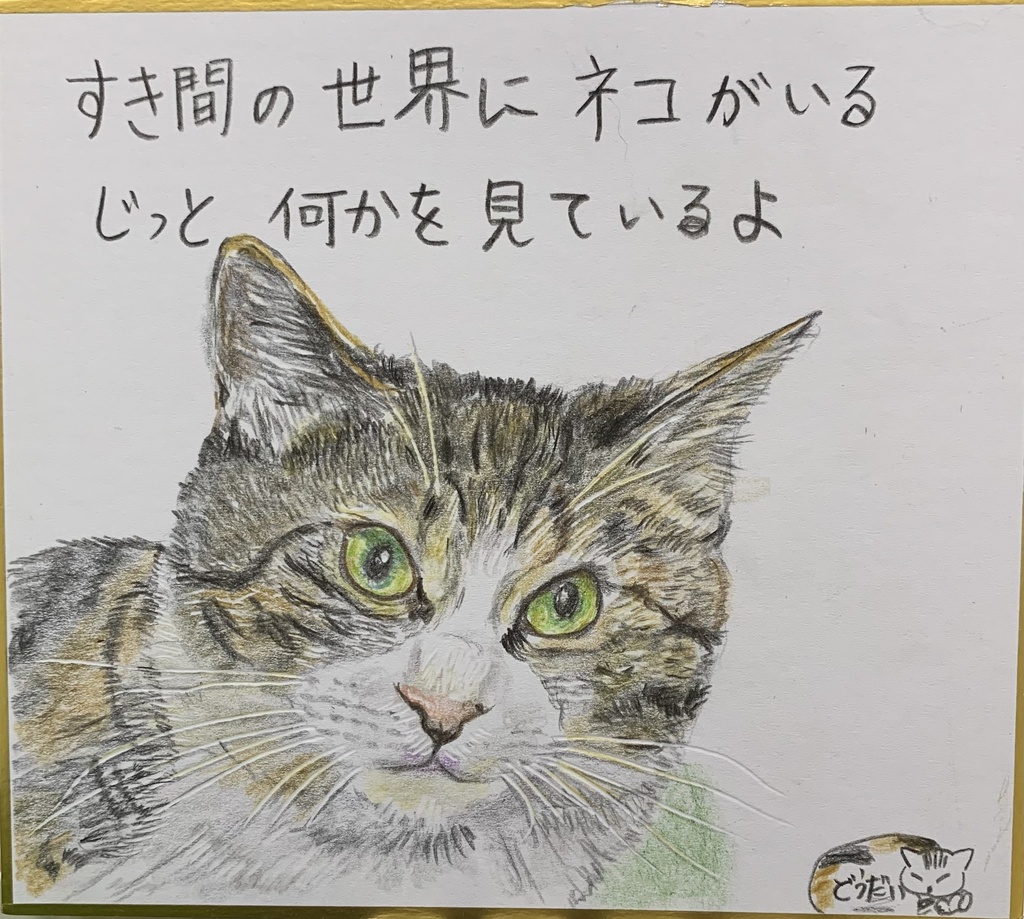 すき間の世界にネコがいる
じっと何かを見ているよ
どうだい